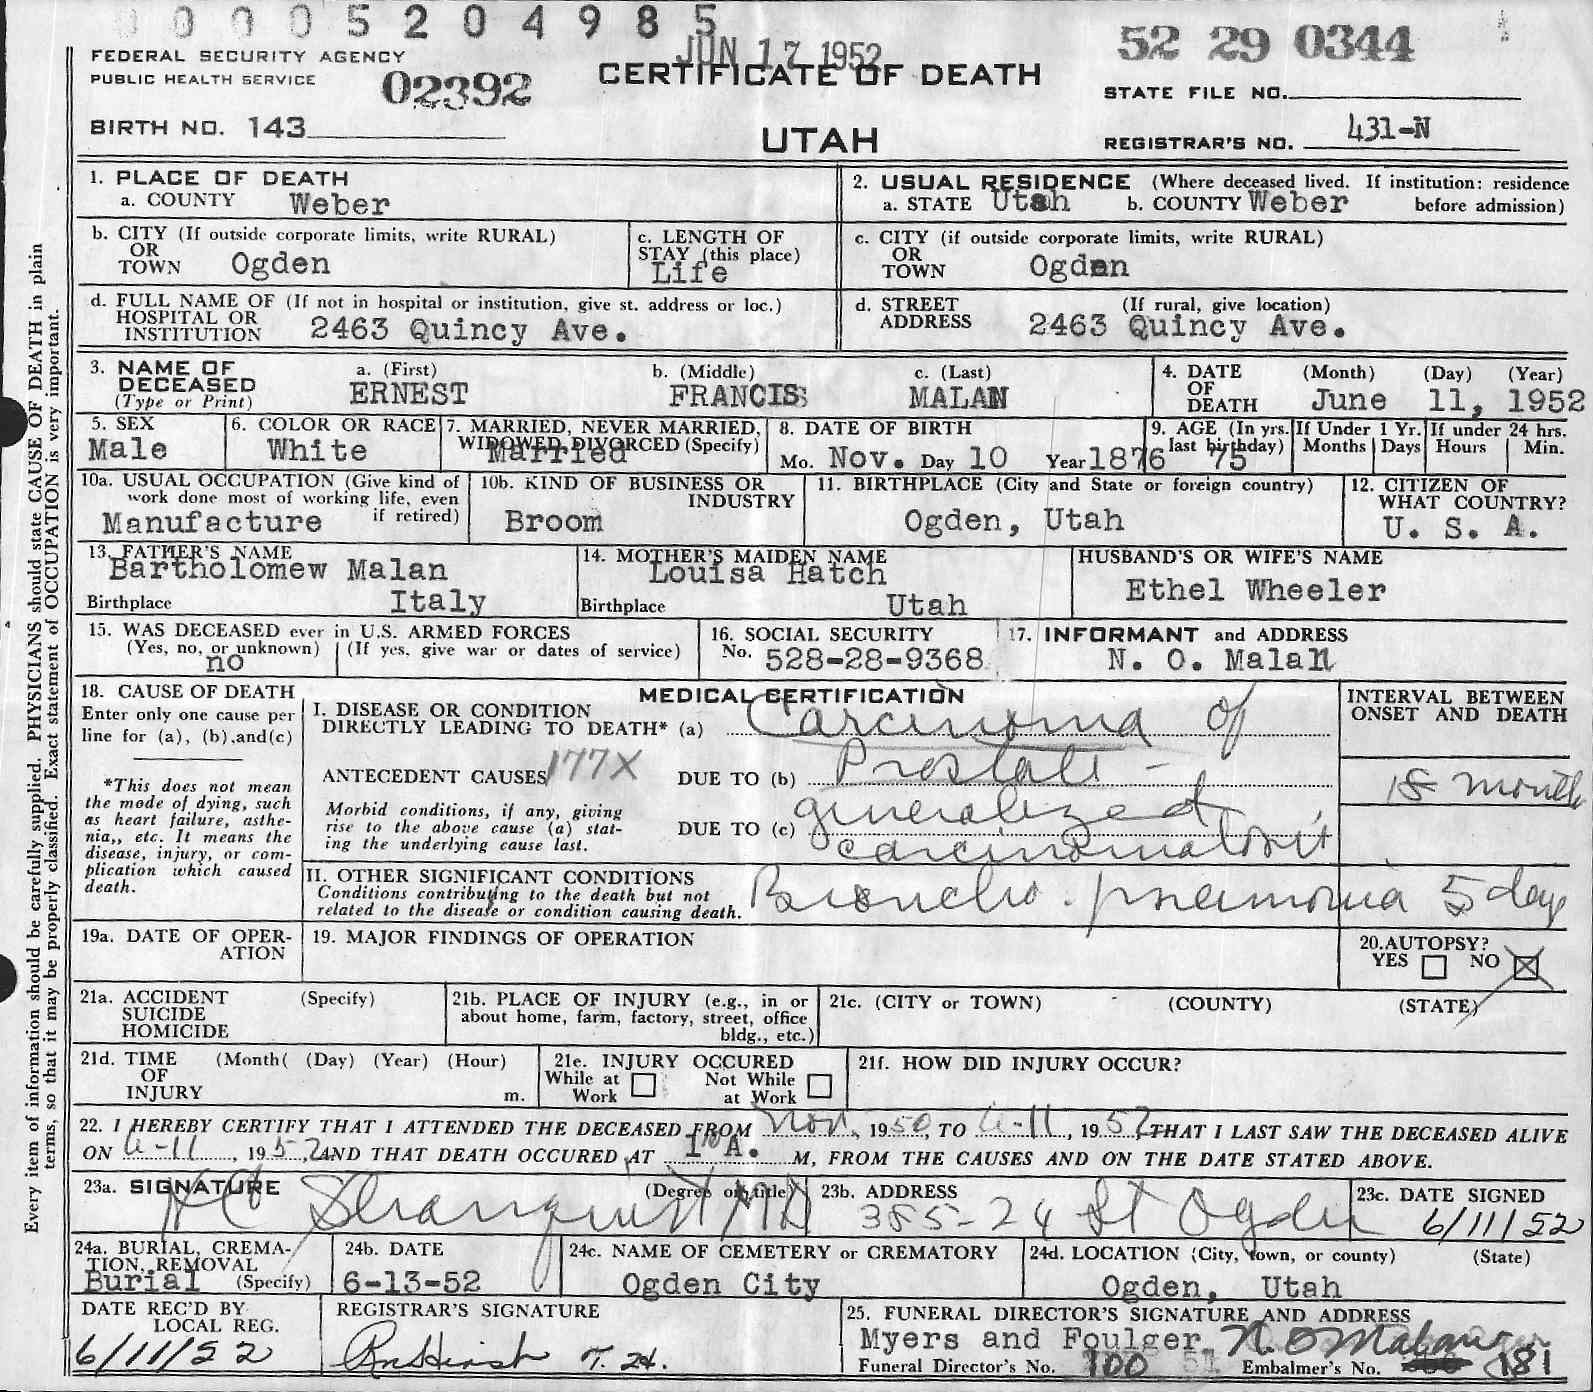 00005204985
JUN 17 1952
52 29 0344
FEDERAL SECURITY AGENCY
PUBLIC HEALTH SERVICE
02392
CERTIFICATE OF DEATH
STATE FILE NO.
BIRTH NO. 143
UTAH
REGISTRAR'S NO. 431-N
Every item of information should be carefully supplied. PHYSICIANS should state CAUSE OF DEATH in plain
terms, so that it may be properly classified. Exact statement of OCCUPATION is very important.
1. PLACE OF DEATH
a. COUNTY Weber
2. USUAL RESIDENCE (Where deceased lived. If institution: residence
a. STATE Utah b. COUNTY Weber before admission)
b. CITY (If outside corporate limits, write RURAL)
OR
TOWN Ogden
c. LENGTH OF
STAY (this place)
Life
c. CITY (if outside corporate limits, write RURAL)
OR
TOWN Ogden
d. FULL NAME OF (If not in hospital or institution, give st. address or loc.)
HOSPITAL OR
INSTITUTION 2463 Quincy Ave.
d. STREET (If rural, give location)
ADDRESS 2463 Quincy Ave.
3. NAME OF
DECEASED
(Type or Print)
a. (First)
ERNEST
b. (Middle)
FRANCIS
c. (Last)
MALAN
4. DATE
OF
DEATH
(Month) (Day) (Year)
June 11, 1952
5. SEX
Male
6. COLOR OR RACE
White
7. MARRIED, NEVER MARRIED,
WIDOWED DIVORCED (Specify)
Married
8. DATE OF BIRTH
Mo. Nov. Day 10 Year 1876
9. AGE (In yrs.
last birthday)
75
If Under 1 Yr.
Months Days
If under 24 hrs.
Hours Min.
10a. USUAL OCCUPATION (Give kind of
work done most of working life, even
if retired)
Manufacture
10b. KIND OF BUSINESS OR
INDUSTRY
Broom
11. BIRTHPLACE (City and State or foreign country)
Ogden, Utah
12. CITIZEN OF
WHAT COUNTRY?
U. S. A.
13. FATHER'S NAME
Bartholomew Malan
Birthplace Italy
14. MOTHER'S MAIDEN NAME
Louisa Hatch
Birthplace Utah
HUSBAND'S OR WIFE'S NAME
Ethel Wheeler
15. WAS DECEASED ever in U.S. ARMED FORCES
(Yes, no, or unknown) (If yes, give war or dates of service)
no
16. SOCIAL SECURITY
No. 528-28-9368
17. INFORMANT and ADDRESS
N. O. Malan
18. CAUSE OF DEATH
Enter only one cause per
line for (a), (b), and(c)
*This does not mean
the mode of dying, such
as heart failure, asthe-
nia,, etc. It means the
disease, injury, or com-
plication which caused
death.
MEDICAL CERTIFICATION
I. DISEASE OR CONDITION
DIRECTLY LEADING TO DEATH* (a) Carcinoma of
ANTECEDENT CAUSES 177X DUE TO (b) Prostate -
Morbid conditions, if any, giving
rise to the above cause (a) stat-
ing the underlying cause last.
DUE TO (c) generalized
carcinomatosis
INTERVAL BETWEEN
ONSET AND DEATH
18 month
II. OTHER SIGNIFICANT CONDITIONS
Conditions contributing to the death but not
related to the disease or condition causing death.
Broncho-pneumonia 5 day
19a. DATE OF OPER-
ATION
19. MAJOR FINDINGS OF OPERATION
20. AUTOPSY?
YES NO
21a. ACCIDENT (Specify)
SUICIDE
HOMICIDE
21b. PLACE OF INJURY (e.g., in or
about home, farm, factory, street, office
bldg., etc.)
21c. (CITY or TOWN) (COUNTY) (STATE)
21d. TIME (Month( (Day) (Year) (Hour)
OF
INJURY m.
21e. INJURY OCCURED
While at
Work
Not While
at Work
21f. HOW DID INJURY OCCUR?
22. I HEREBY CERTIFY THAT I ATTENDED THE DECEASED FROM Nov., 1950, TO 6-11, 1952, THAT I LAST SAW THE DECEASED ALIVE
ON 6-11, 1952, AND THAT DEATH OCCURED AT A. M, FROM THE CAUSES AND ON THE DATE STATED ABOVE.
23a. SIGNATURE (Degree or title)
Stranquist MD
23b. ADDRESS
385-24 St Ogden
23c. DATE SIGNED
6/11/52
24a. BURIAL, CREMA-
TION, REMOVAL
Burial (Specify)
24b. DATE
6-13-52
24c. NAME OF CEMETERY or CREMATORY
Ogden City
24d. LOCATION (City, town, or county) (State)
Ogden, Utah
DATE REC'D BY
LOCAL REG.
6/11/52
REGISTRAR'S SIGNATURE
25. FUNERAL DIRECTOR'S SIGNATURE AND ADDRESS
Myers and Foulger N. O Malan
Funeral Director's No. 100 Embalmer's No. 181